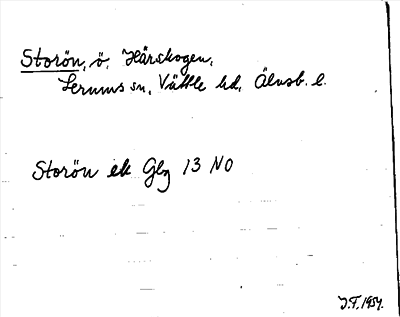 Storön, ö. Härskogen,
Lerums sn, Vättle hd, Älvsb. l.
Storön ek Gbg 13 NO
J.F. 1954.